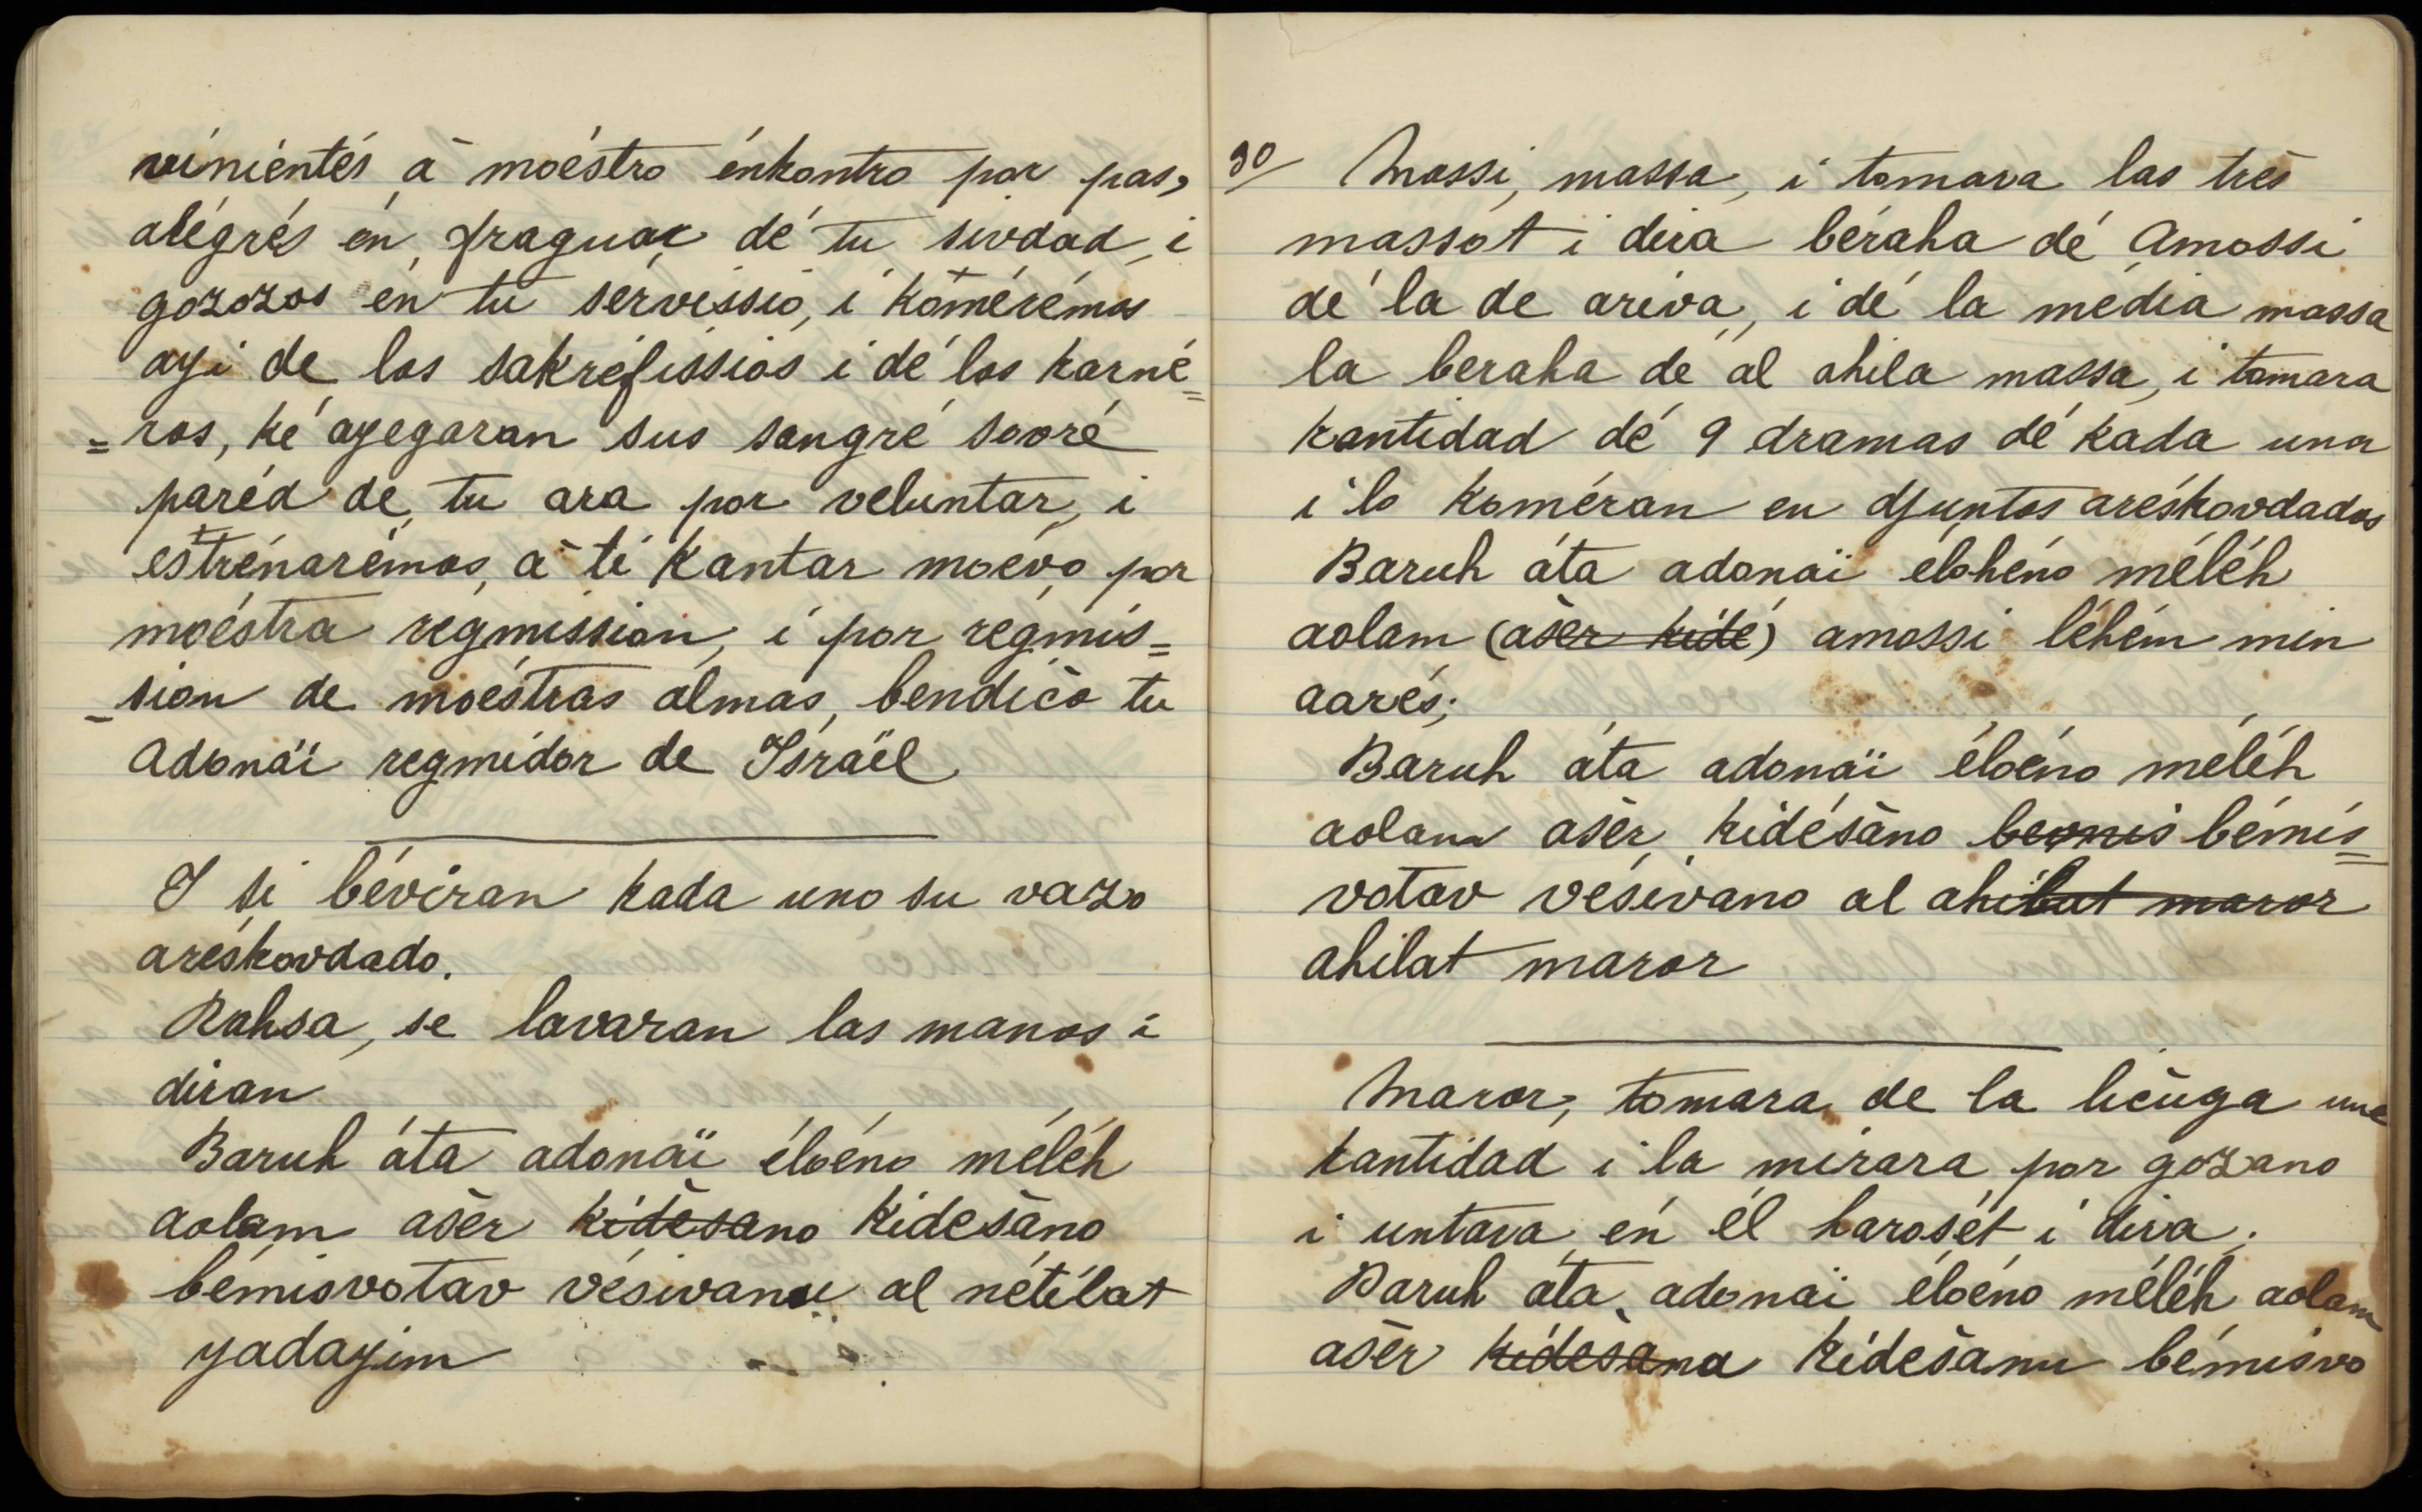 viniéntés à moéstro énkontro por pas,
alégrés én fraguar dé tu sivdad, i
gozozos én tu sérvissio, i komérémos
ayi de los sakréfissios i dé los karné=
=ros, ké ayegaran sus sangré sovré
paréd de tu ara por veluntar, i
estrénarémos, à ti kantar moévo por
moéstra regmission, i por régmis=
-sion de moéstras almas, bendićo tu
Adonaï regmidor de Israël
I si béviran kada uno su vazo
aréskovdado.
Rahsa, se lavaran las manos i
diran
Baruh áta adonaï éloéno méléh
aolam ašer kidéšano kidešano
bémisvotav vésivanu al nétilat
yadayim
30/ Mossi, massa, i tomara las trés
massót i dira béraha dé Amossi
dé la de ariva, i dé la média massa
la beraha de al ahila massa, i tomara
kantidad dé 9 dramas dé kada una
i lo koméran en djuntos aréskovdados
Baruh áta adonaï élohéno méléh
aolam (ašer kidé) amossi léhém min
aarés;
Baruh áta adonaï éloéno méléh
aolam ašer kidéšano bemis bémis=
votav vésivano al ahilat maror
ahilat maror
Maror, tomara de la lićuga una
kantidad i la mirara por gozano
i untara én él harosét i dira.
Baruh áta adonaï éloéno méléh aolam
ašer kidešana kidešanu bémisvo